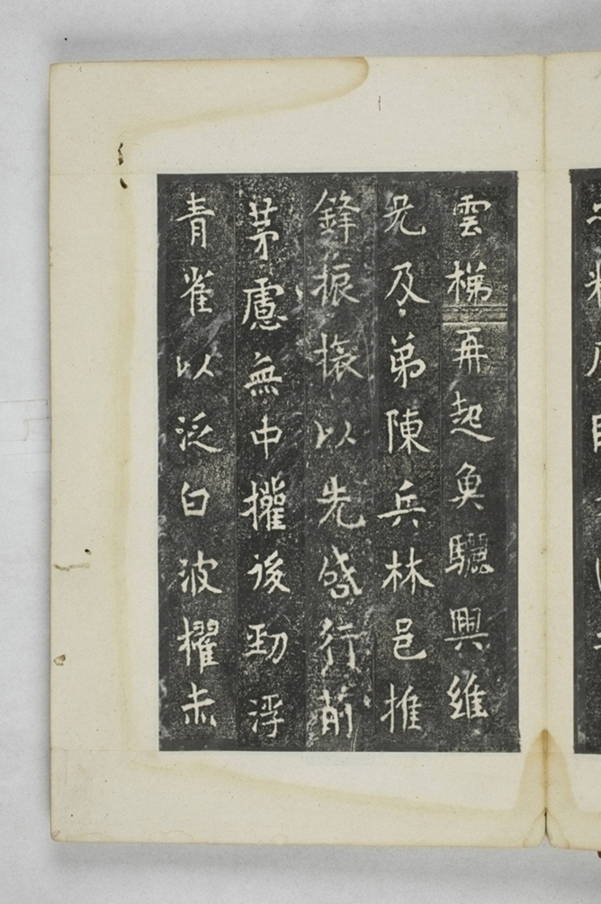 雲梯再起魚驪興維
兄及弟陳兵林邑推
鋒振旅以先啓行前
茅慮無中權後勁浮
青雀以泛白波櫂赤